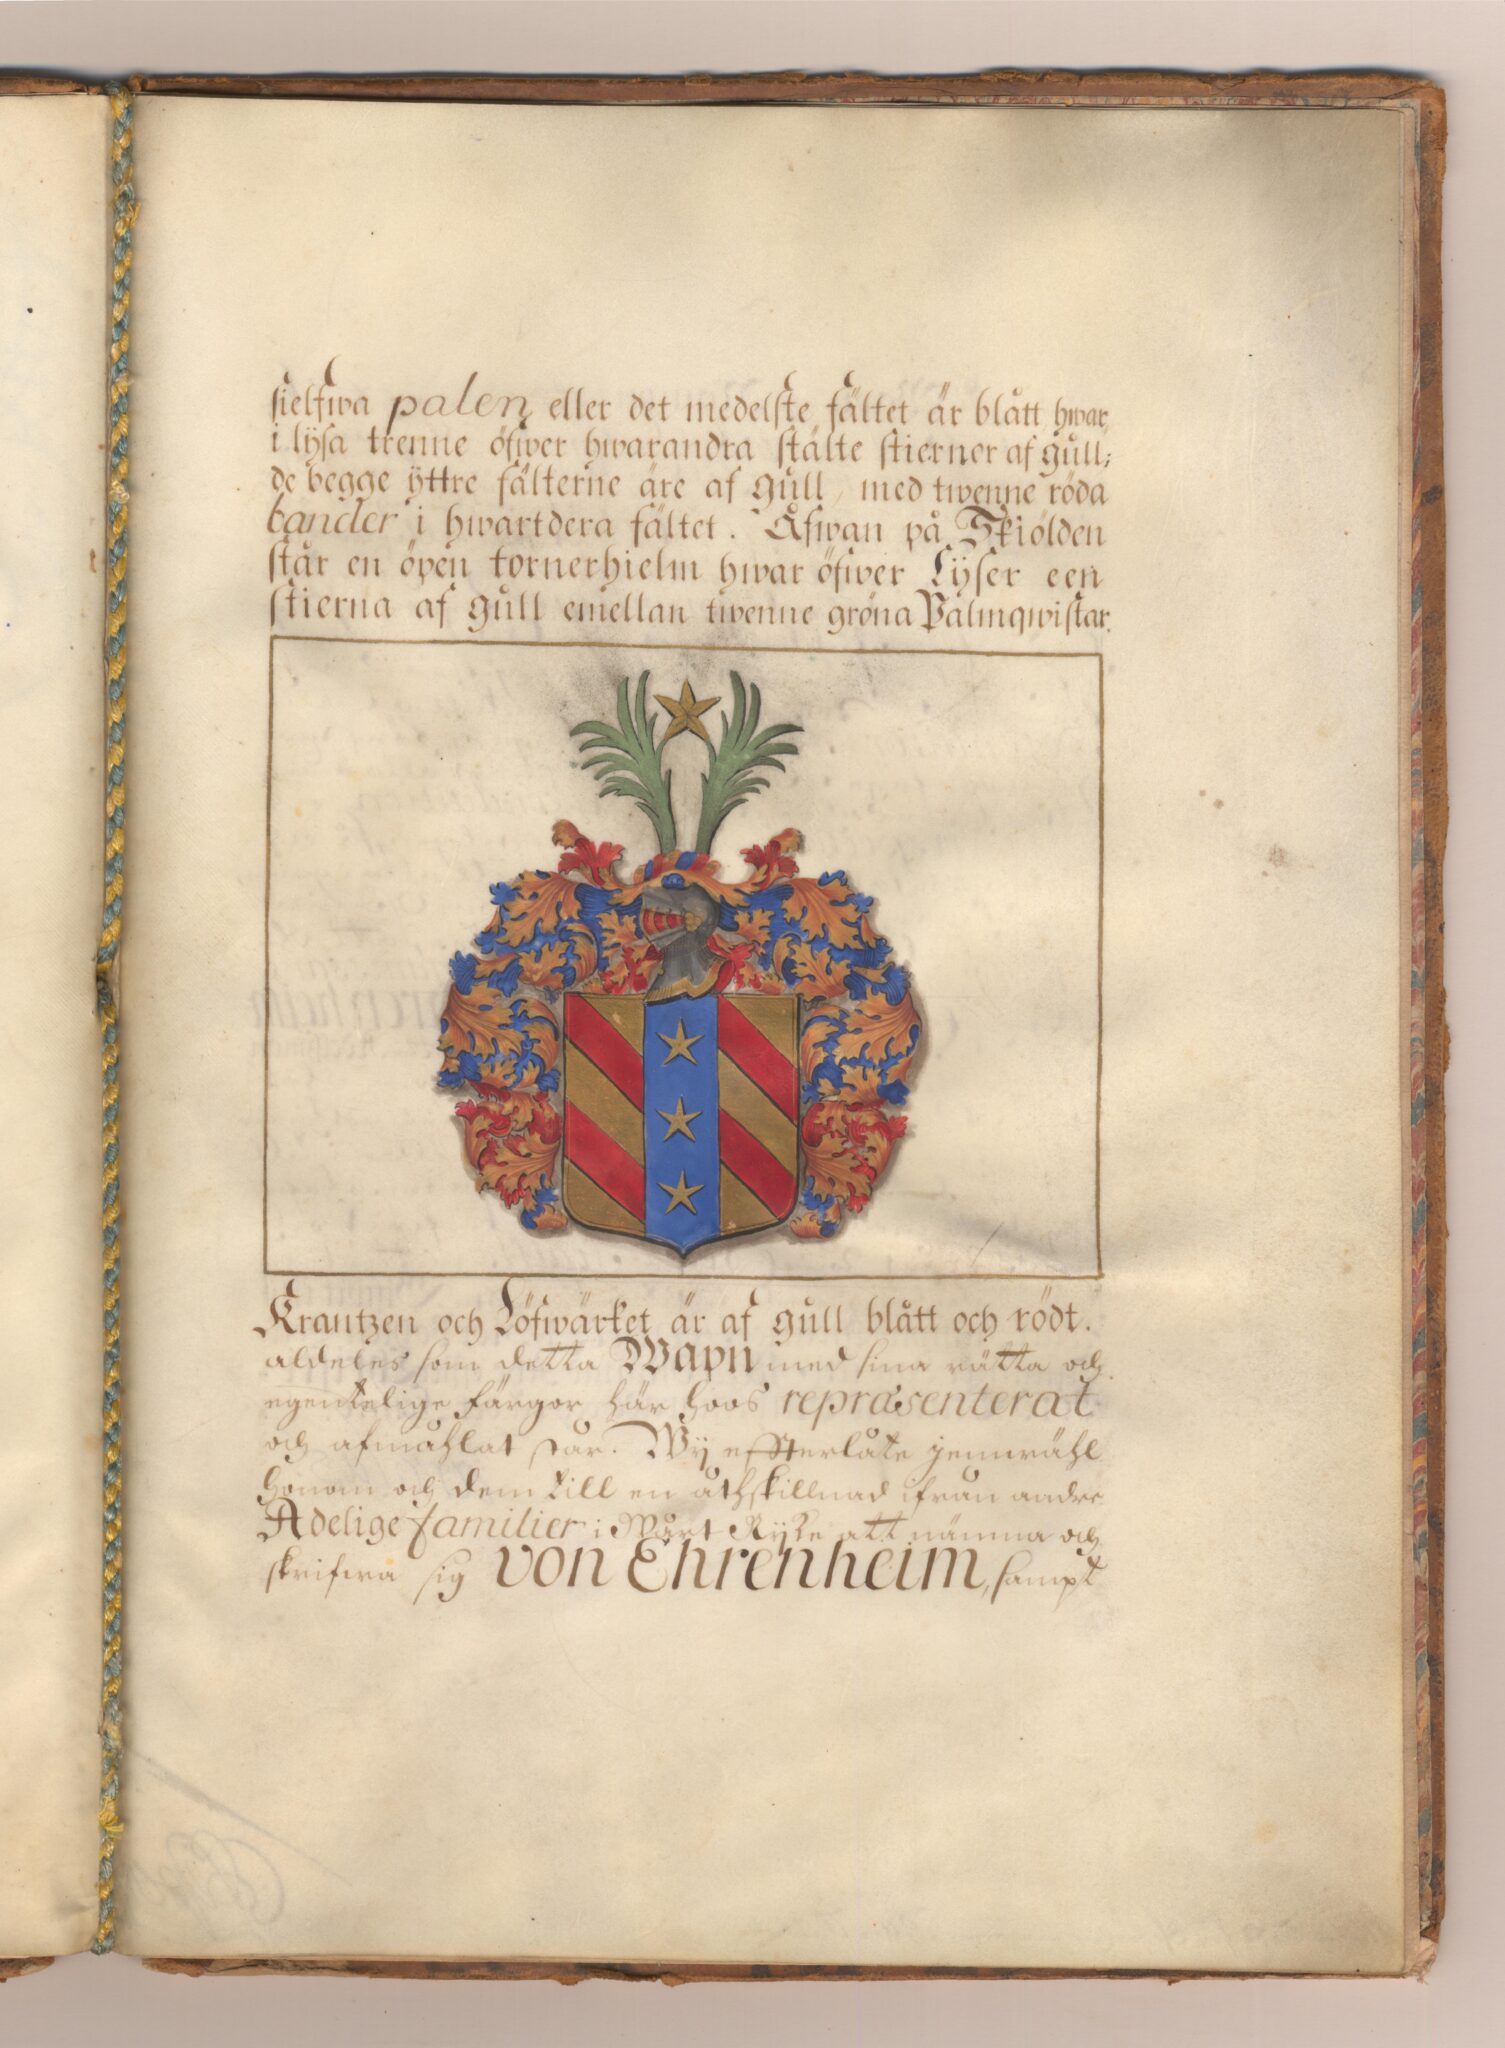 sielfwa palen eller det medelste fältet är blått hwar,
i lÿsa trenne öfwer hwarandra stälte stierner af gull;
de begge ÿttre fälterne äre af gull, med twenne röda
bander i hwartdera fältet. Åfwan på Skiölden
står en öpen tornerhielm hwar öfwer Lÿser een
stierna af gull emellan twenne gröna Palmqwistar.
Krantzen och Löfwärket är af gull blått och rödt.
aldeles som detta Wapn med sina rätta och
egentelige färgor här hoos repræsenterat
och afmåhlat står. Wÿ efterlåte jemwähl
honom och dem till en åthskillnad ifrån andre
Adelige familier i Wårt Rÿke att nämna och
skrifwa sig von Ehrenheim, sampt